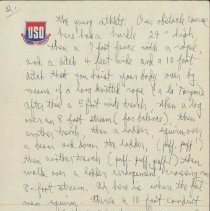 2.
USO
the young athlete. Our obstacle course
has been a hurdle 24" high
then a 7 foot fence with a rope
and a ditch 4 feet wide and a 10 foot
ditch that you hoist your body over by
means of a long knotted rope (à la Tarzan)
after that a 5 foot wide trench, then a log
over an 8 foot stream (for balance), then
another trench, then a ladder, swing over
a beam and down the ladder, (puff!)
then another trench (puff, puff, puff!) then
walk over a ladder arrangement crossing an
8-foot stream. Ah here is where the fat
men squirm. There's a 10-foot conduit